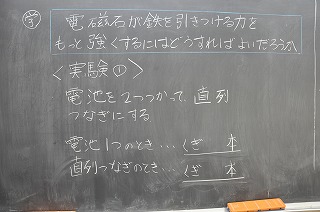 学 電磁石が鉄を引きつける力を
もっと強くするにはどうすればよいだろうか
<実験①>
電池を2つつかって、直列
つなぎにする
電池1つのとき…くぎ 本
直列つなぎのとき…くぎ 本